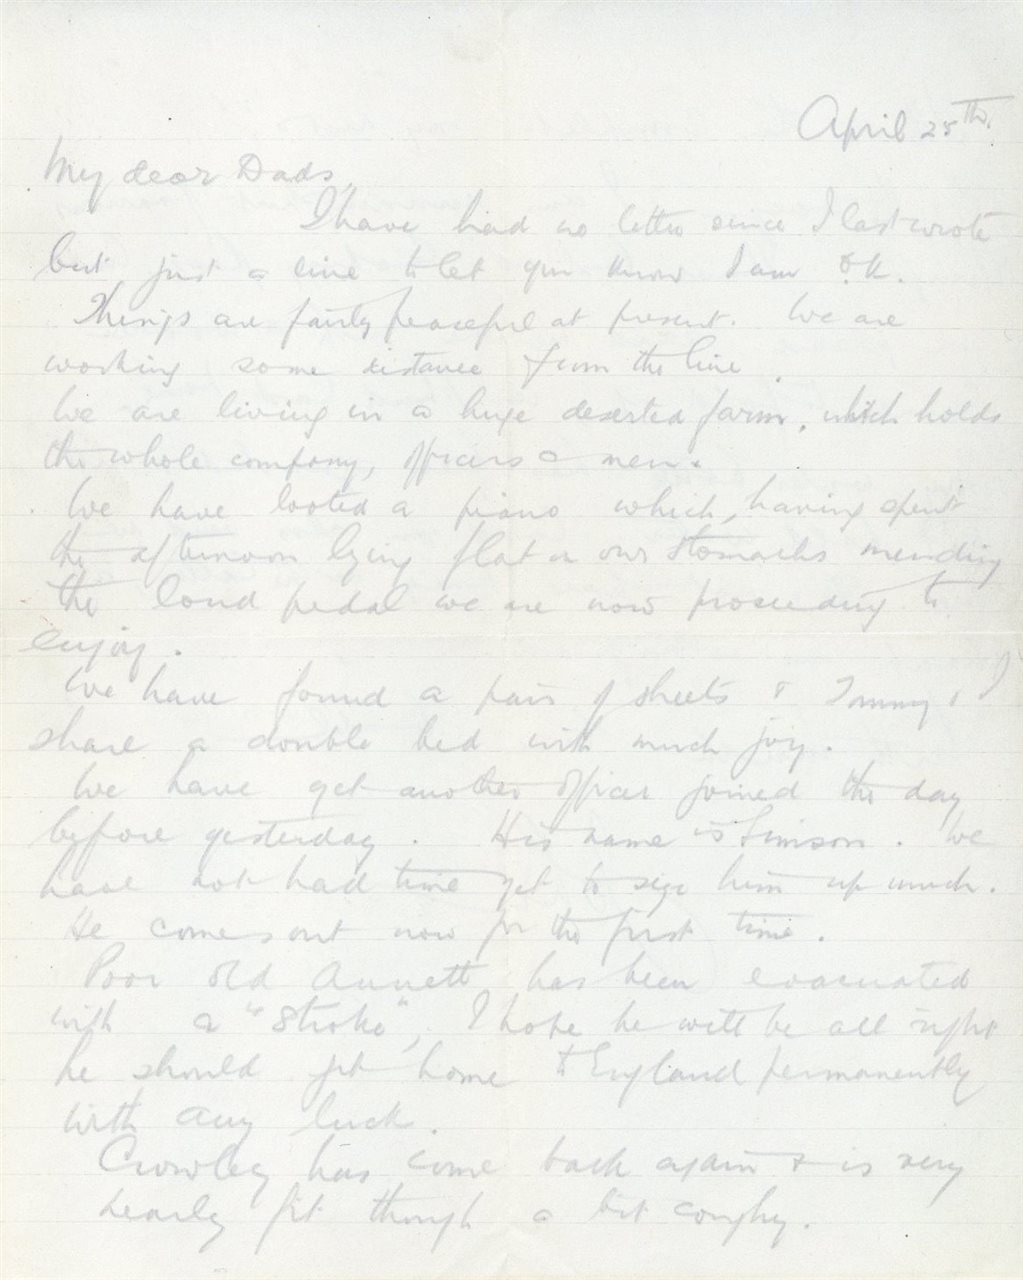 April 25th.
My dear Dads,
I have had no letter since I last wrote
but just a line to let you know I am O.K.
Things are fairly peaceful at present. We are
working some distance from the line.
We are living in a huge deserted farm, which holds
the whole company, officers & men.
We have looted a piano which, having spent
the afternoon lying flat on our stomachs mending
the loud pedal we are now proceeding to
enjoy.
We have found a pair of sheets & Tommy & I
share a double bed with much joy.
We have got another officer joined the day
before yesterday. His name is Simson. We
have not had time yet to size him up much.
He comes out now for the first time.
Poor old Annett has been evacuated
with a "stroke", I hope he will be all right
he should get home to England permanently
with any luck.
Crowley has come back again & is very
nearly fit though a bit coughy.